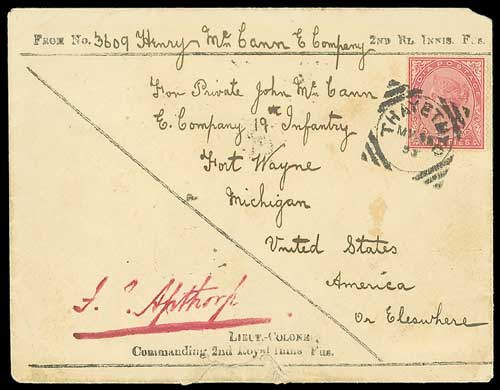 FROM No. 3609 Henry Mc Cann E Company 2ND RL INNIS. FUS.
For Private John Mc Cann
E. Company 19th Infantry
Fort Wayne
Michigan
United States
America
Or Eleswhere
THAYETM
Apthorp
LIEUT.-COLONEL
Commanding 2nd Royal Innis Fus.